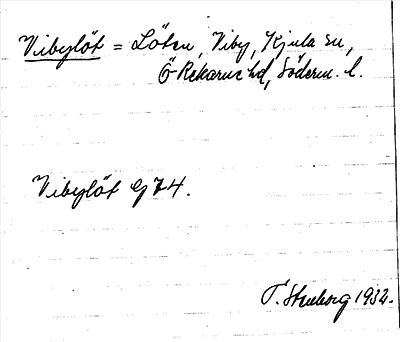 Vibylöt = Löten, Viby, Kjula sn,
Ö Rekarne hd, Söderm. l.
Vibylöt G 74.
T. Stenborg 1932.